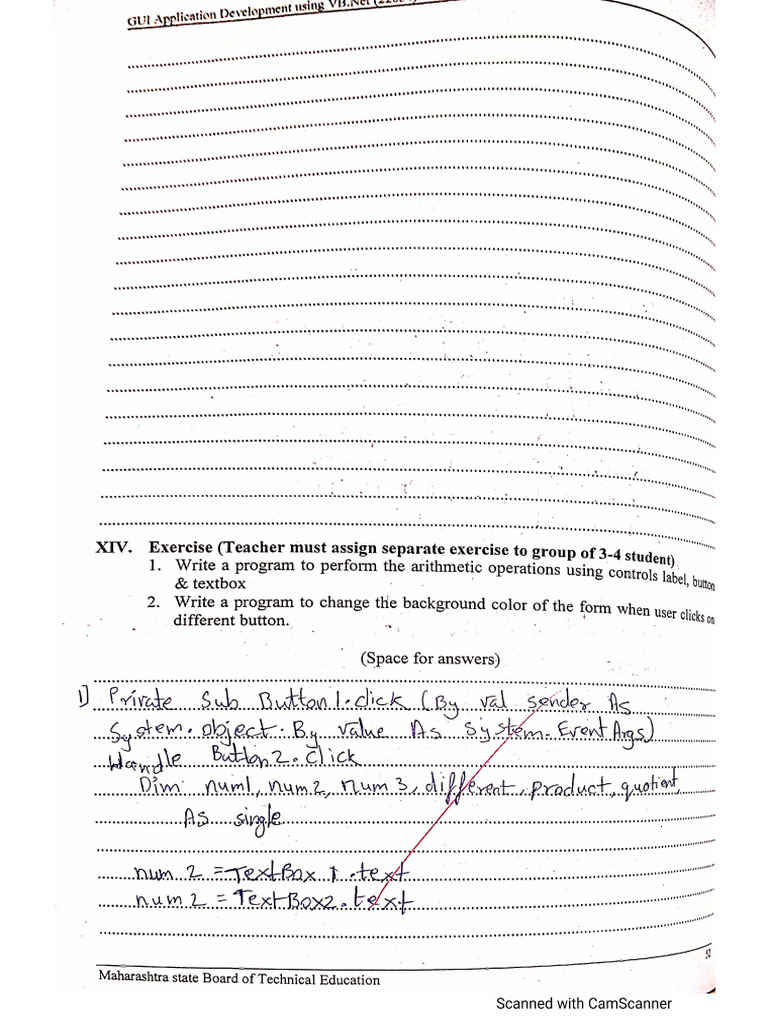 GUI Application Development using VB.Net
XIV. Exercise (Teacher must assign separate exercise to group of 3-4 student)
1. Write a program to perform the arithmetic operations using controls label, button
& textbox
2. Write a program to change the background color of the form when user clicks on
different button.
(Space for answers)
1) Private Sub Button1.click (By val sender As
System.object. By value As System.EventArgs)
Handle Button2.click
Dim num1, num2, num3, different, product, quotient,
As single
num 2 = TextBox 1.text
num 2 = TextBox2.text
Maharashtra state Board of Technical Education
Scanned with CamScanner